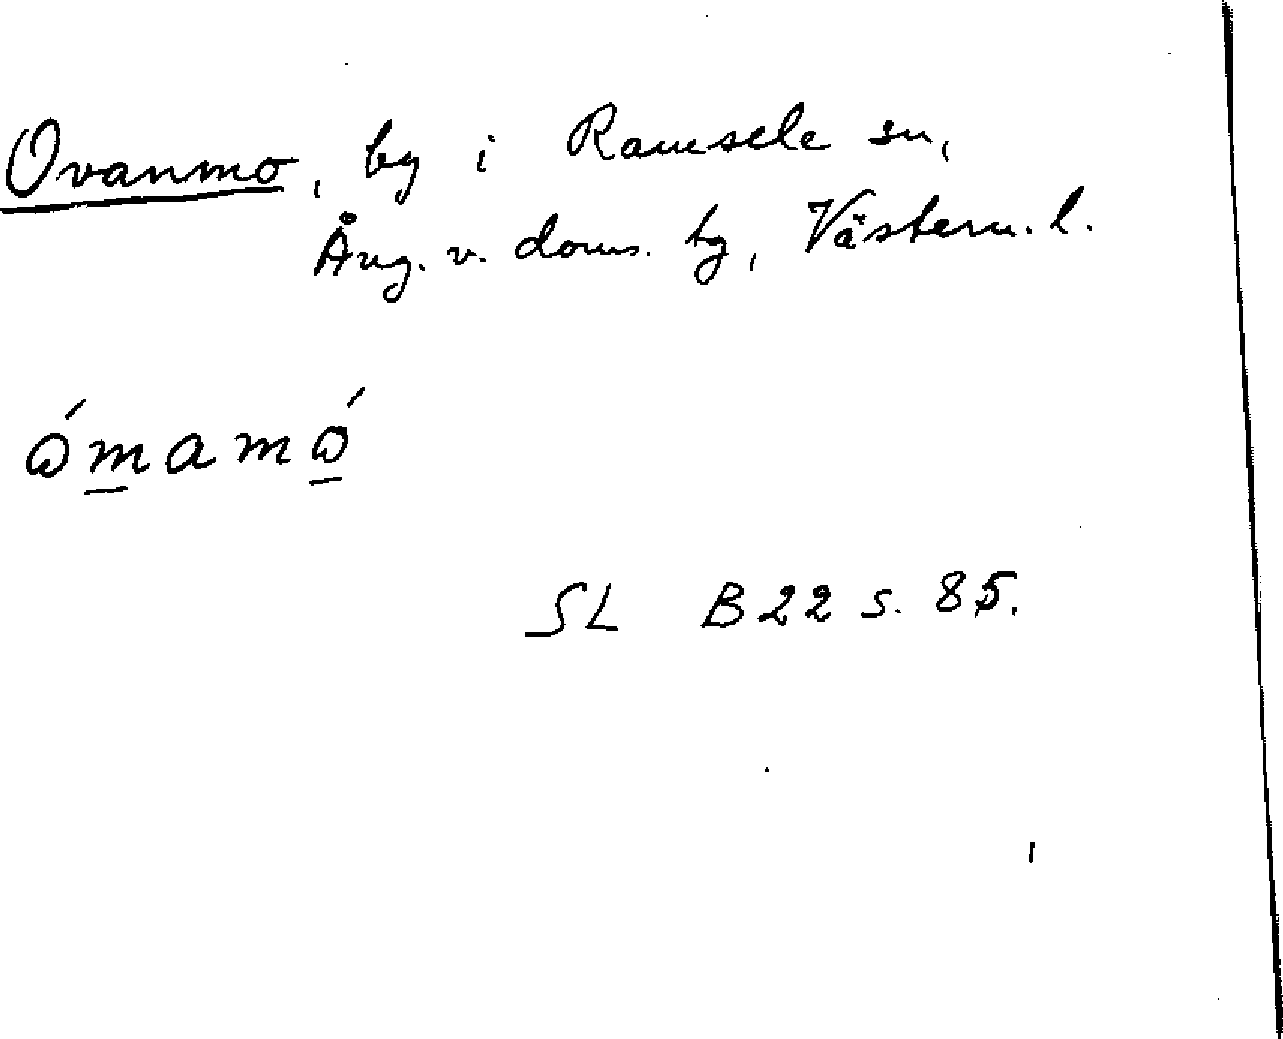 Ovanmo, by i Ramsele sn,
Ång. v. doms. tg, Västern. l.
ώm̲amώ̲
SL B22 s. 85.